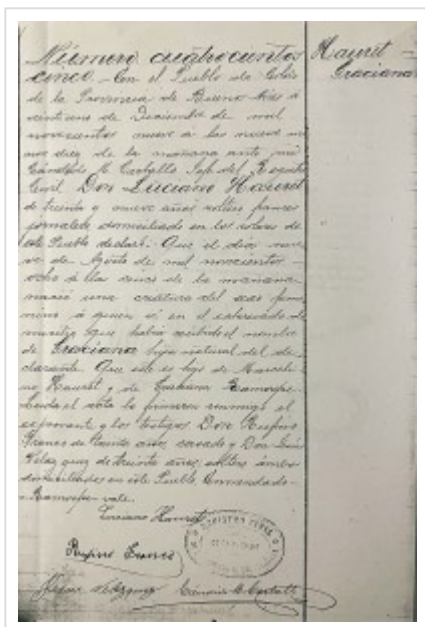 Número cuatrocientos
cinco.- En el Pueblo de Colón
de la Provincia de Buenos Aires á
veintiuno de Diciembre de mil
novecientos nueve á las nueve
diez de la mañana ante mí
Jefe del Registro
Civil Don Luciano Hauret
de treinta y nueve años soltero francés
jornalero domiciliado en los
este Pueblo declaró: Que el día nue
ve de Agosto de mil novecientos
ocho á las cinco de la mañana
nació una criatura del sexo feme
nino á quien vi en el
que había recibido el nombre
de Graciana hija natural del de
clarante. Que este es hijo de Marceli
no Hauret y de
Leida el acta la firmaron conmigo el
exponente y los testigos Don Rufino
Franco de treinta años, casado y Don
Velazquez de treinta años, soltero ámbos
domiciliados en este Pueblo Enmendado-
vale.
Luciano Hauret
Rufino Franco
Velazquez
Hauret -
Graciana
REGISTRO CIVIL